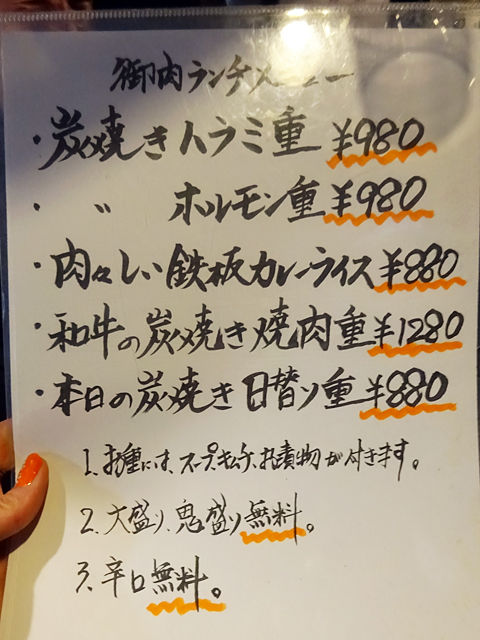 御肉ランチメニュー
・炭焼きハラミ重 ¥980
・ 〃 ホルモン重 ¥980
・肉々しい鉄板カレーライス ¥880
・和牛の炭焼き焼肉重 ¥1280
・本日の炭焼き日替り重 ¥880
1.お重には、スープ、キムチ、お漬物が付きます。
2.大盛り、鬼盛り無料。
3.辛口無料。